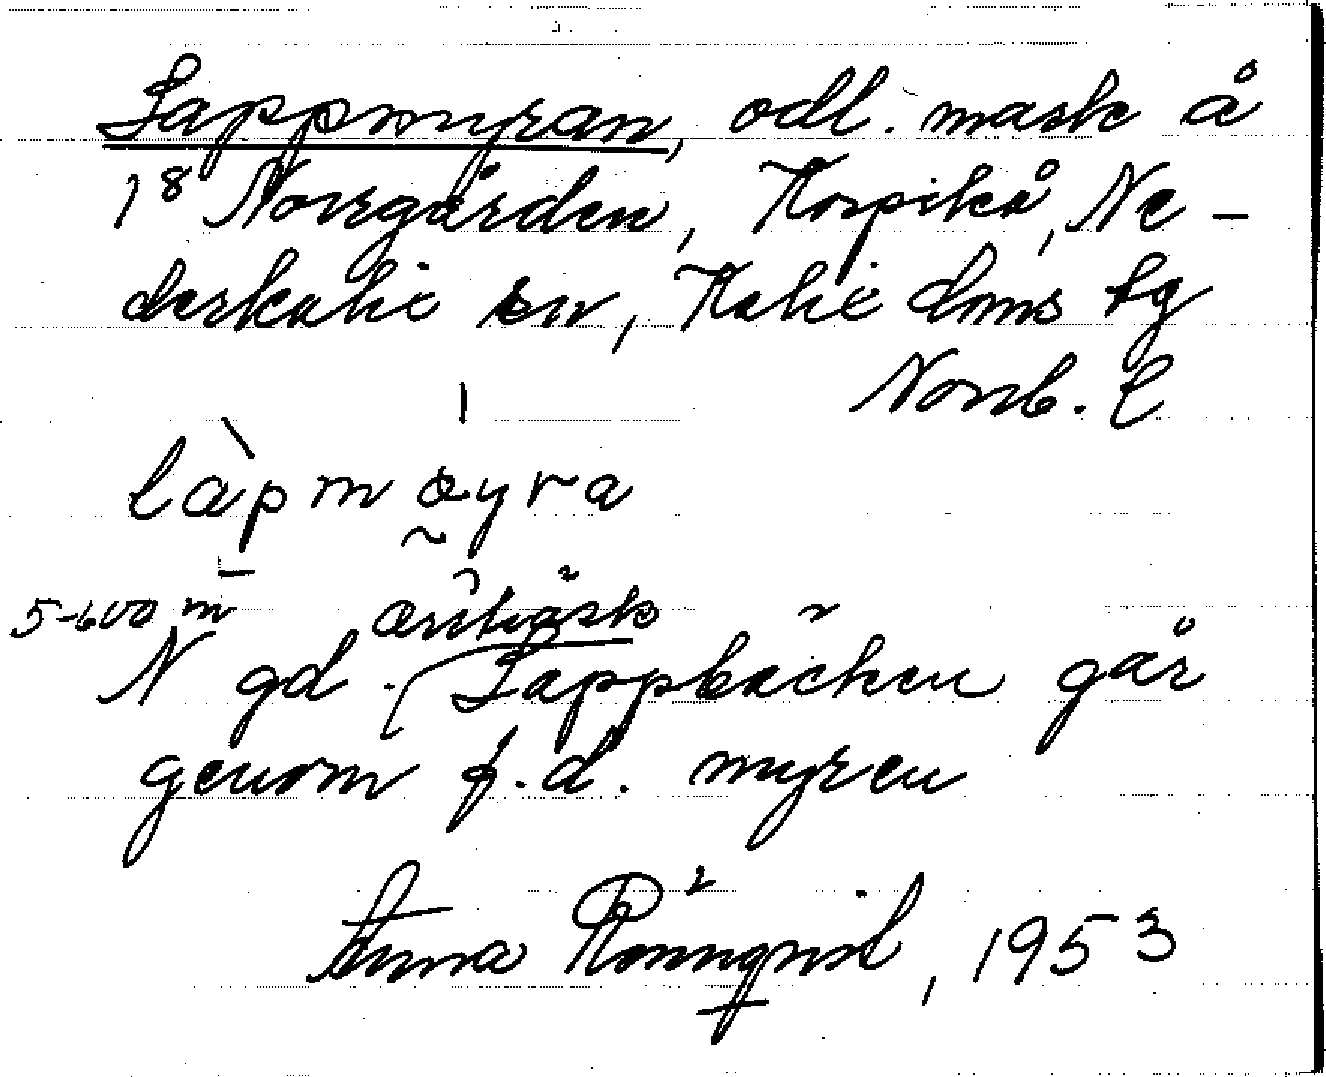 Lappmyran, odl. mark å
1⁸ Norrgården, Korpikå, Ne-
derkalix sn, Kalix doms tg
Norrb. l
làpmøyra
5-600 m
N gd. Lappbäcken går
genom f.d. myren
Anna Rönnqvist, 1953